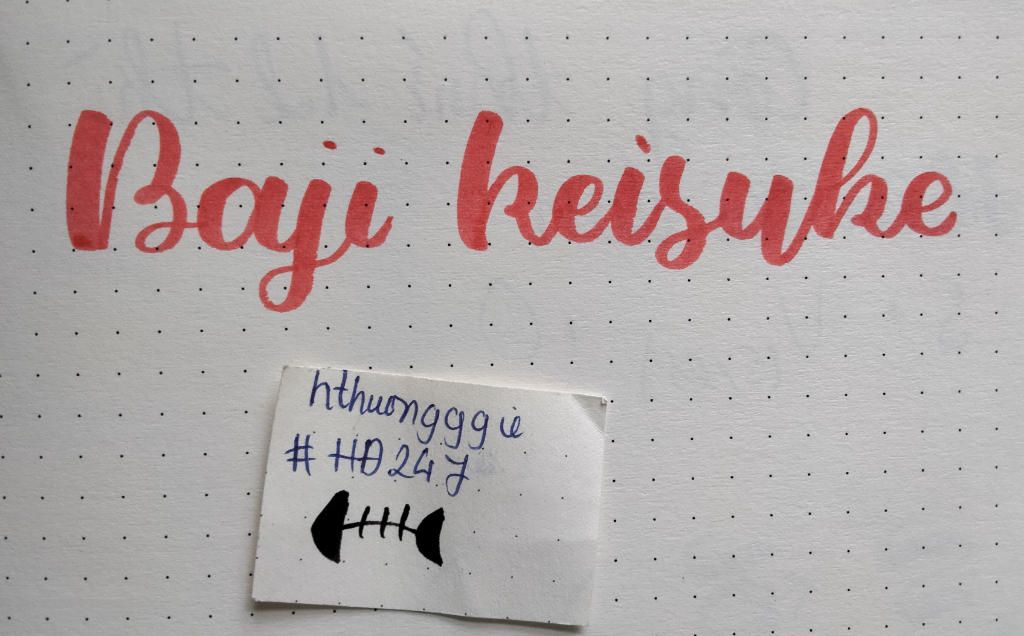 Baji keisuke
hthuongggie
#HĐ24J